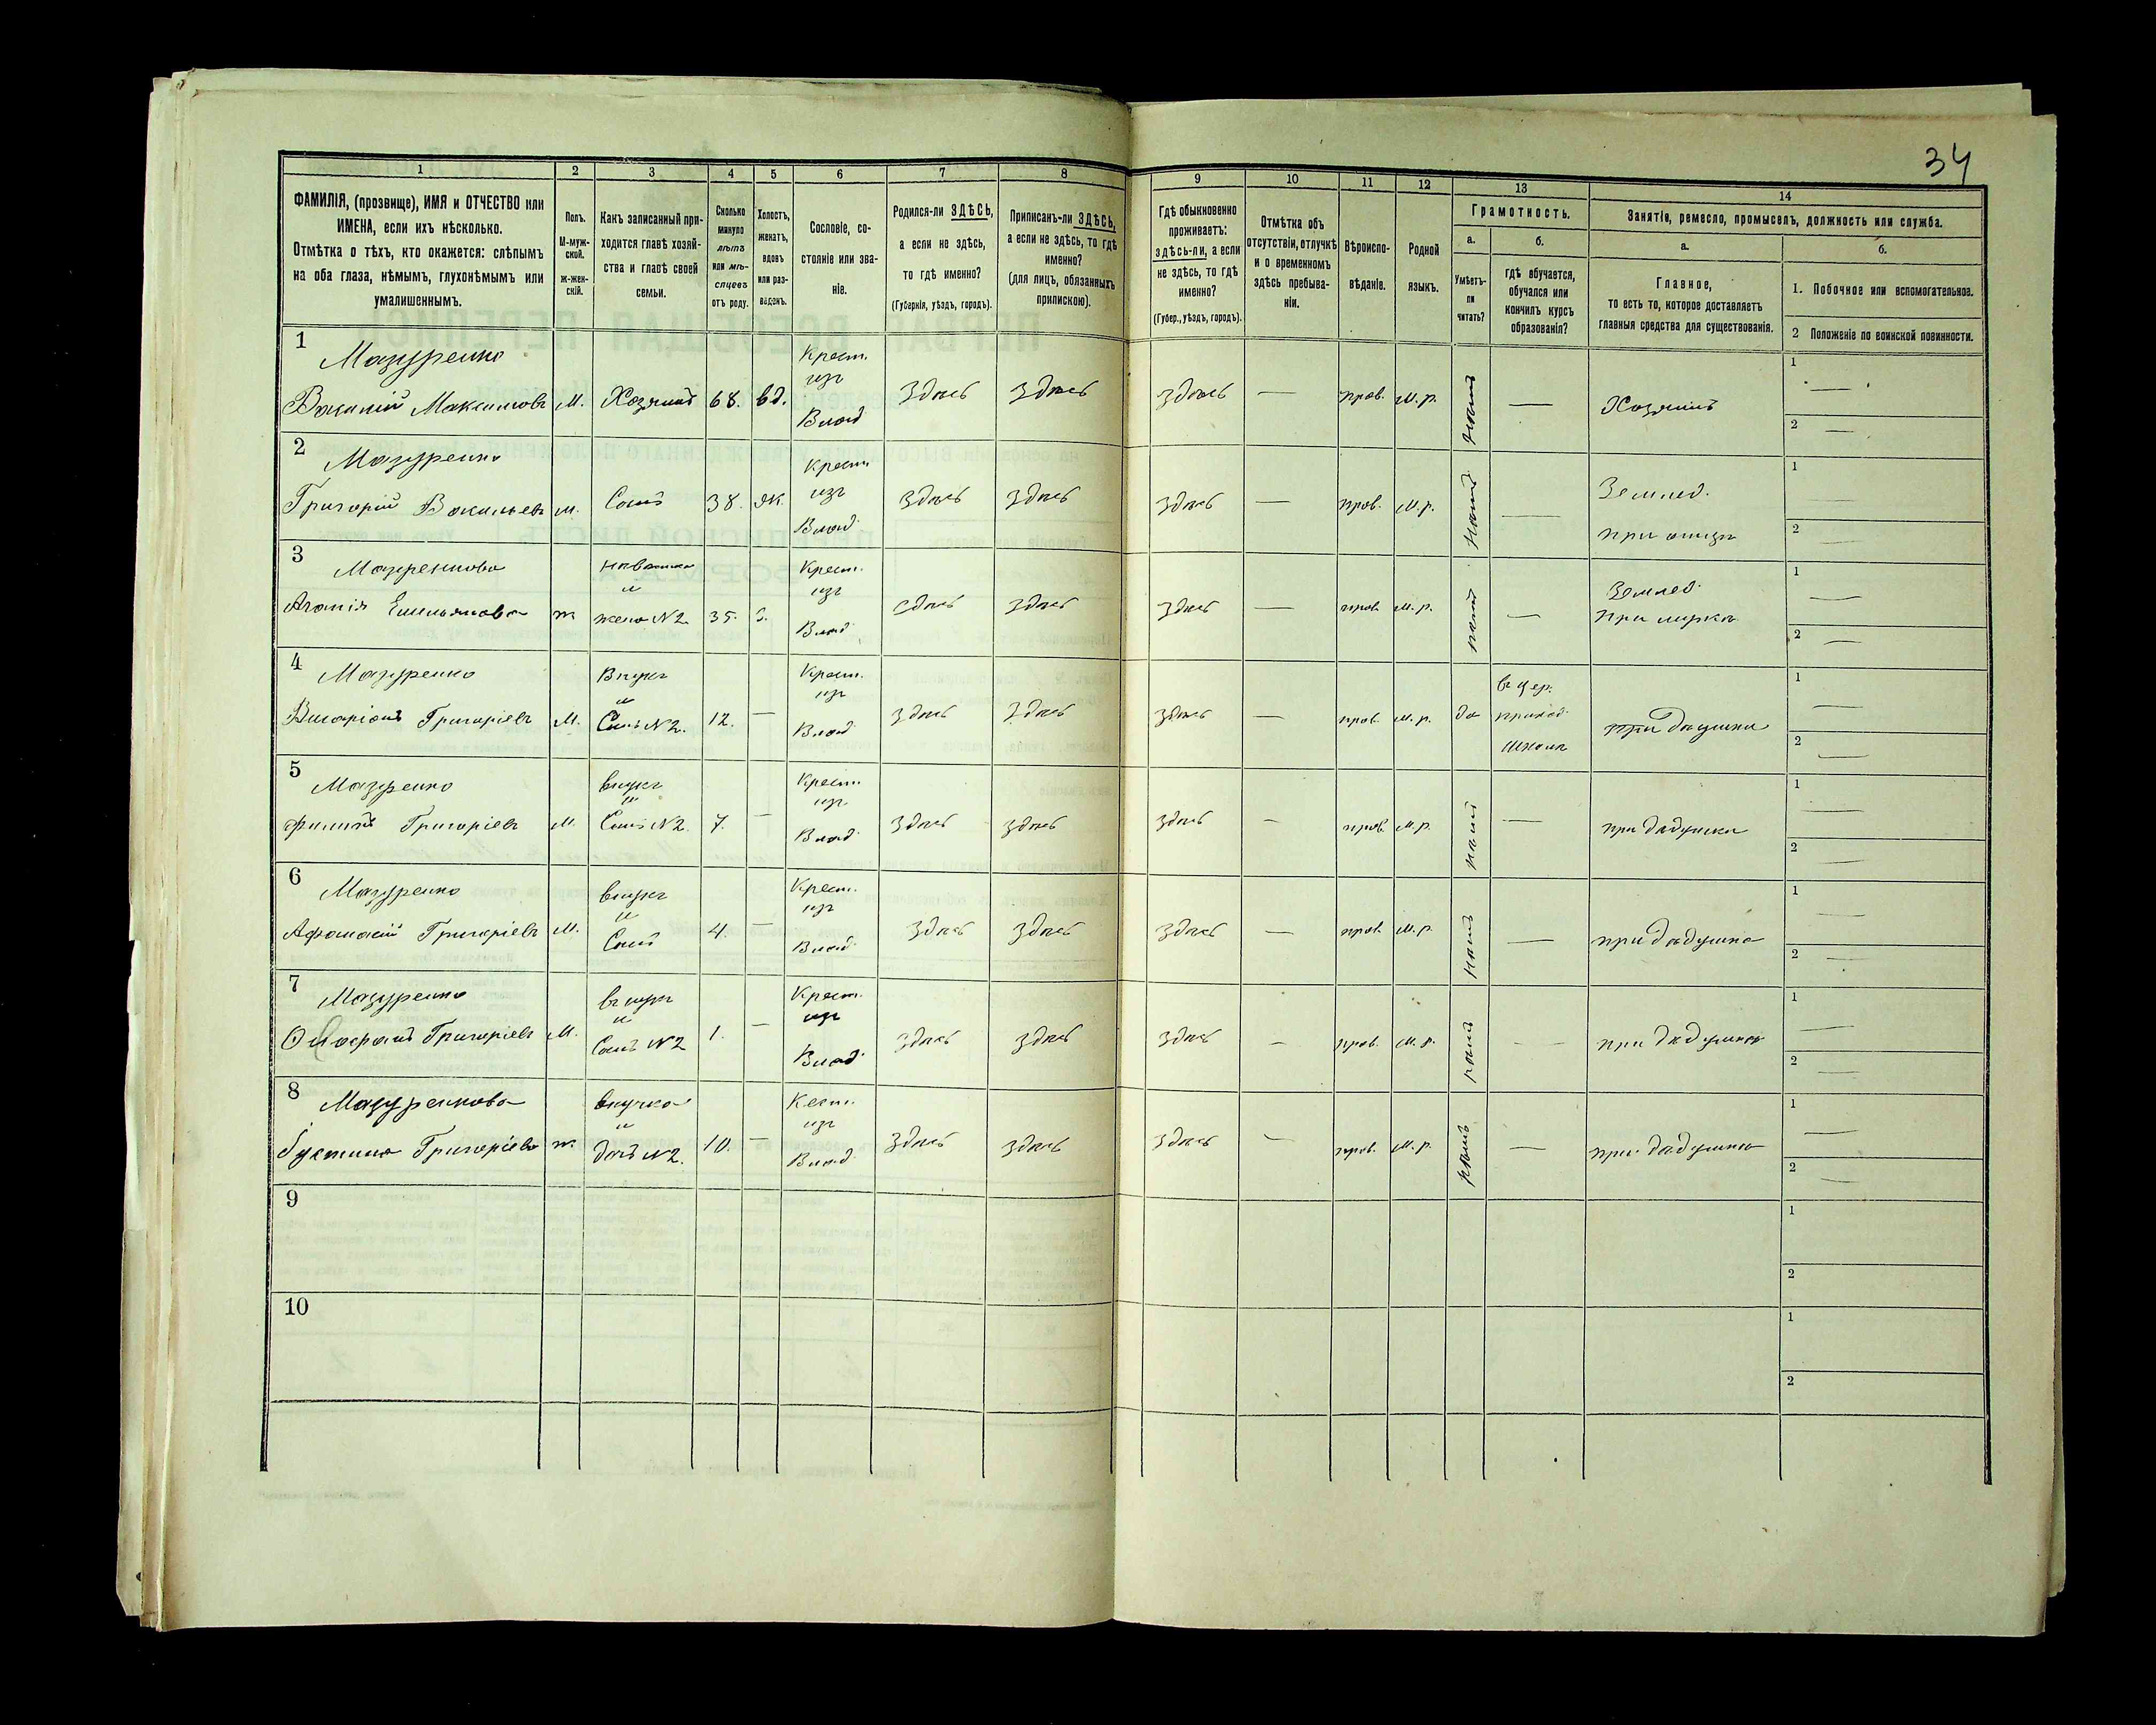 34
1 2 3 4 5 6 7 8 9 10 11 12 13 14
ФАМИЛІЯ, (прозвище), ИМЯ и ОТЧЕСТВО или
ИМЕНА, если ихъ нѣсколько.
Отмѣтка о тѣхъ, кто окажется: слѣпымъ
на оба глаза, нѣмымъ, глухонѣмымъ или
умалишеннымъ.
Полъ.
М-муж-
ской.
ж-жен-
скій.
Какъ записанный при-
ходится главѣ хозяй-
ства и главѣ своей
семьи.
Сколько
минуло
лѣтъ
или мѣ-
сяцевъ
отъ роду.
Холостъ,
женатъ,
вдовъ
или раз-
веденъ.
Сословіе, со-
стояніе или зва-
ніе.
Родился-ли ЗДѢСЬ,
а если не здѣсь,
то гдѣ именно?
(Губернія, уѣздъ, городъ).
Приписанъ-ли ЗДѢСЬ,
а если не здѣсь, то гдѣ
именно?
(для лицъ, обязанныхъ
припискою).
Гдѣ обыкновенно
проживаетъ:
здѣсь-ли, а если
не здѣсь, то гдѣ
именно?
(Губер., уѣздъ, городъ).
Отмѣтка объ
отсутствіи, отлучкѣ
и о временномъ
здѣсь пребыва-
ніи.
Вѣроиспо-
вѣданіе.
Родной
языкъ.
Грамотность.
а.
Умѣетъ-
ли
читать?
б.
гдѣ обучается,
обучался или
кончилъ курсъ
образованія?
Занятіе, ремесло, промыселъ, должность или служба.
а.
Главное,
то есть то, которое доставляетъ
главныя средства для существованія.
б.
1. Побочное или вспомогательное.
2 Положеніе по воинской повинности.
1 Мазуренко Крест. 1
изъ
Василій Максимовъ М. Хозяинъ 68. вд. Влад. Здѣсь Здѣсь Здѣсь — прав. м.р. нѣтъ — Хозяинъ —
2 —
2 Мазуренко Крест. 1
изъ Землед.
Григорій Васильевъ м. Сынъ 38. ж. Влад. Здѣсь Здѣсь Здѣсь — прав. м.р. нѣтъ — при отцѣ —
2 —
3 Мазуренкова невѣстка Крест. 1
и изъ Землед.
Агапія Емельянова ж жена N 2. 35. Влад. Здѣсь Здѣсь Здѣсь — прав. м.р. нѣтъ — при —
2 —
4 Мазуренко Внукъ Крест. въ цер. 1
и изъ
Виларіонъ Григоріевъ М. Сынъ N 2. 12. — Влад. Здѣсь Здѣсь Здѣсь — прав. м.р. да приход. при дѣдушки —
школѣ 2 —
5 Мазуренко внукъ Крест. 1
и изъ
Филипъ Григоріевъ М. Сынъ N 2. 7. — Влад. Здѣсь Здѣсь Здѣсь — прав. м.р. нѣтъ — при дѣдушки —
2 —
6 Мазуренко внукъ Крест. 1
и изъ
Афанасій Григоріевъ М. Сынъ 4. — Влад. Здѣсь Здѣсь Здѣсь — прав. м.р. нѣтъ — при дѣдушкѣ —
2 —
7 Мазуренко внукъ Крест. 1
и изъ
Григоріевъ М. Сынъ N 2 1. — Влад. Здѣсь Здѣсь Здѣсь — прав. м.р. нѣтъ — при дѣдушкѣ —
2 —
8 Мазуренкова внучка Кест. 1
и изъ
Григоріева ж. дочь N 2. 10. — Влад. Здѣсь Здѣсь Здѣсь — прав. м.р. нѣтъ — при дѣдушкѣ —
2 —
9 1
2
10 1
2